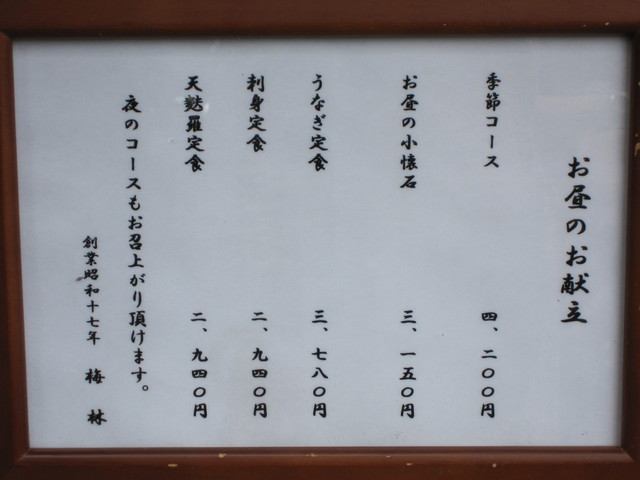 お昼のお献立
季節コース 四、二〇〇円
お昼の小懐石 三、一五〇円
うなぎ定食 三、七八〇円
刺身定食 二、九四〇円
天麩羅定食 二、九四〇円
夜のコースもお召上がり頂けます。
創業昭和十七年 梅林